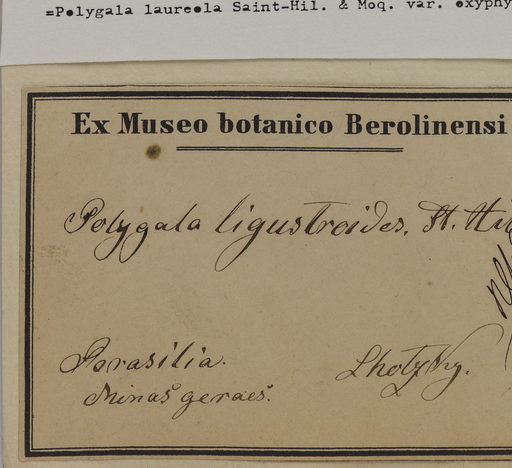 =Polygala laureola Saint-Hil. & Moq. var. oxyphy
Ex Museo botanico Berolinensi
Polygala ligustroides. St. Hil
Brasilia.
Minas geraës.
Lhotzky.